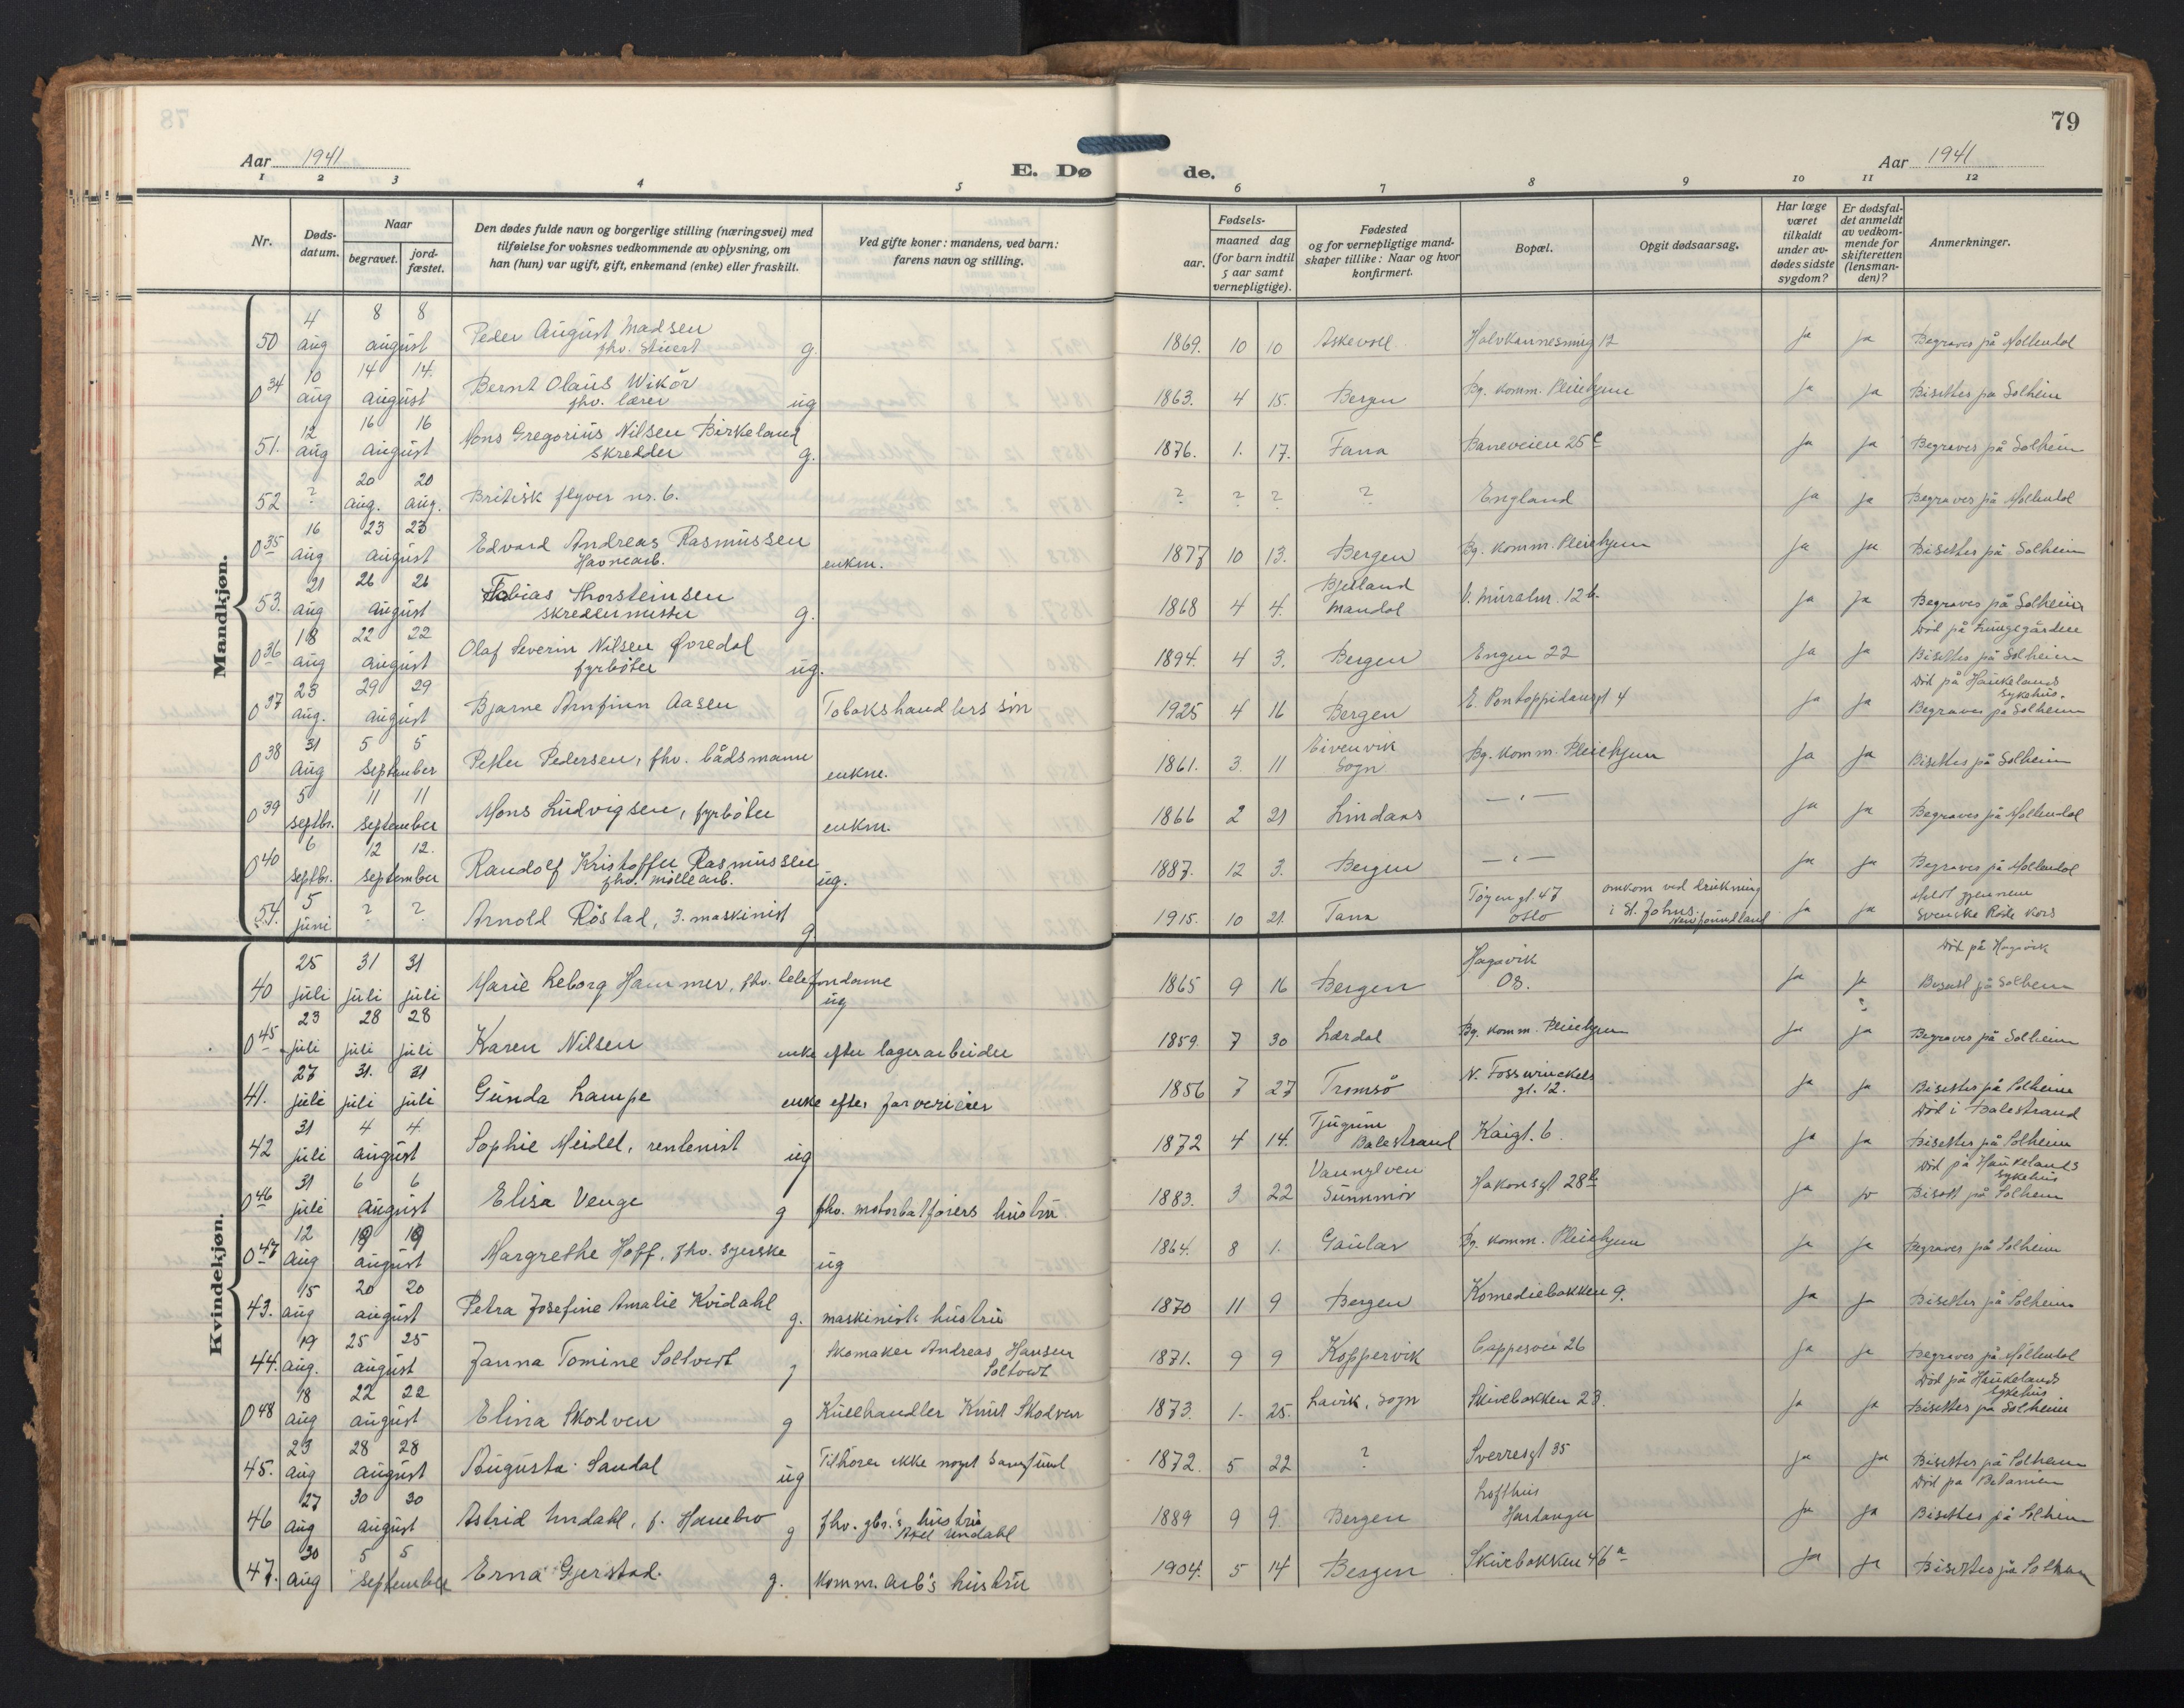 78
79
Aar 1941
E. Dø
de.
Aar 1941
1 2 3 4 5 6 7 8 9 10 11 12
Nr.
Døds-datum.
Naar
begravet.
jord-fæstet.
Den dødes fulde navn og borgerlige stilling (næringsvei) med
tilføielse for voksnes vedkommende av oplysning, om
han (hun) var ugift, gift, enkemand (enke) eller fraskilt.
Ved gifte koner: mandens, ved barn:
farens navn og stilling.
Fødsels-
aar.
maaned dag
(for barn indtil
5 aar samt
vernepligtige).
Fødested
og for vernepligtige mand-
skaper tillike: Naar og hvor
konfirmert.
Bopæl.
Opgit dødsaarsag.
Har læge
været
tilkaldt
under av-
dødes sidste
sygdom?
Er dødsfal-
det anmeldt
av vedkom-
mende for
skifteretten
(lensman-
den)?
Anmerkninger.
Mandkjøn.
50 4 aug 8 8 august Peder August Madsen fhv. stuert g. 1869. 10 10 Askevoll Halvkannesmug 12 ja ja Begraves på Møllendal
0 34 10 aug 14 14. august Bernt Olaus Wikør fhv. lærer ug 1863. 4 15. Bergen Bg. komm. Pleiehjem ja ja Bisettes på Solheim
51. 12 aug 16 16 august Mons Gregorius Nilsen Birkeland skredder g. 1876. 1. 17. Fana Baneveien 25 c ja ja Begraves på Solheim
52 ? 20 aug. 20 aug. Britisk flyver nr. 6. ? ? ? ? England ja ja Begraves på Møllendal
0 35 16 aug 23 23 august Edvard Andreas Rasmussen Havnearb. enkm. 1877 10 13. Bergen Bg. komm. Pleiehjem ja ja Bisettes på Solheim
53. 21 aug 26 26 august Tobias Thorsteinsen skreddermester g. 1868 4 4. Bjelland Mandal V. Muralm. 12 b. ja ja Begraves på Solheim
0 36 18 aug 22 22 august Olaf Severin Nilsen Øvredal fyrbøter ug. 1894. 4 3. Bergen Engen 22 ja ja Død på Lungegården Bisettes på Solheim
0 37 23 aug. 29 29 august Bjarne Arnfinn Aasen Tobakshandlers søn 1925 4 16 Bergen E. Pontoppidansgt 4 ja ja Død på Haukelands sykehus. Begraves på Solheim
0 38 31 aug 5 5 september Petter Pedersen, fhv. bådsmann enkm. 1861. 3. 11 Eivenvik Sogn Bg. komm. Pleiehjem ja ja Bisettes på Solheim
0 39 5 septbr. 11 11 september Mons Ludvigsen, fyrbøter enkm. 1866 2 21 Lindaas — " — ja ja Begraves på Møllendal
0 40 6 septbr. 12 12. september Randolf Kristoffer Rasmussen fhv. møllearb. ug. 1887. 12 3. Bergen — " — ja ja Begraves på Møllendal
54. 5 juni ? ? Arnold Røstad, 3. maskinist g 1915. 10 21. Tana Tøyengt. 47 Oslo omkom ved drukning i St. Johns. Newfoundland ja ja Meldt gjennem Svenske Røde Kors
Kvindekjøn.
40 25 juli 31 juli 31 juli Marie Leborg Hammer, fhv. telefondame ug 1865 9 16 Bergen Hagavik Os. ja ja Død på Hagavik Bisatt på Solheim
0 45 23 juli 28 juli 28 juli Karen Nilsen enke efter lagerarbeider 1859. 7 30 Lærdal Bg. komm. Pleiehjem ja ja Begraves på Solheim
41. 27 juli 31. juli 31 juli Gunda Lampe enke efter farverieier 1856 7 27 Tromsø N. Fosswinckels gt. 12. ja ja Bisettes på Solheim
42 31 juli 4 4 august Sophie Meidel, rentenist ug 1872 4 14. Tjugum Balestrand Kaigt. 6. ja ja Død i Balestrand Bisettes på Solheim
0 46 31 juli 6 6 august Elisa Venge g fhv. motorbåtførers hustru 1883. 3 22 Vannylven Sunnmør Hakonsgt 28 b ja ja Død på Haukelands sykehus Bisatt på Solheim
0 47 12 aug 19 19 august Margrethe Hoff, fhv. syerske ug 1864. 8 1. Gaular Bg. komm. Pleiehjem ja ja Begraves på Solheim
43. 15 aug 20 20 august Petra Josefine Amalie Kvidahl g. maskinists hustru 1870 11 9 Bergen Komediebakken 9. ja ja Bisettes på Solheim
44. 19 aug. 25 25 august Janna Tomine Soltvedt g Skomaker Andreas Hansen Soltvedt 1871. 9 9 Koppervik Cappesvei 26 ja ja Begraves på Møllendal
0 48 18 aug 22 22 august Elina Skodven g Kullhandler Knut Skodven 1873. 1. 25. Lavik, Sogn Skivebakken 23. ja ja Død på Haukelands sykehus Bisettes på Solheim
45. 23 aug 28 28 august Augusta Sandal ug Tilhører ikke noget samfund 1872. 5 22 ? Sverresgt 35 ja ja Bisettes på Solheim
46 27 aug 30 30 august Astrid Undahl, f. Hanebro g fhv. gbr.'s hustru Axel Undahl 1889 9 9. Bergen Lofthus Hardanger ja ja Død på Betanien Bisettes på Solheim
47. 30 aug 5 5 september Erna Gjerstad. g. komm. arb's hustru 1904. 5 14 Bergen Skivebakken 46 a ja ja Bisettes på Solheim